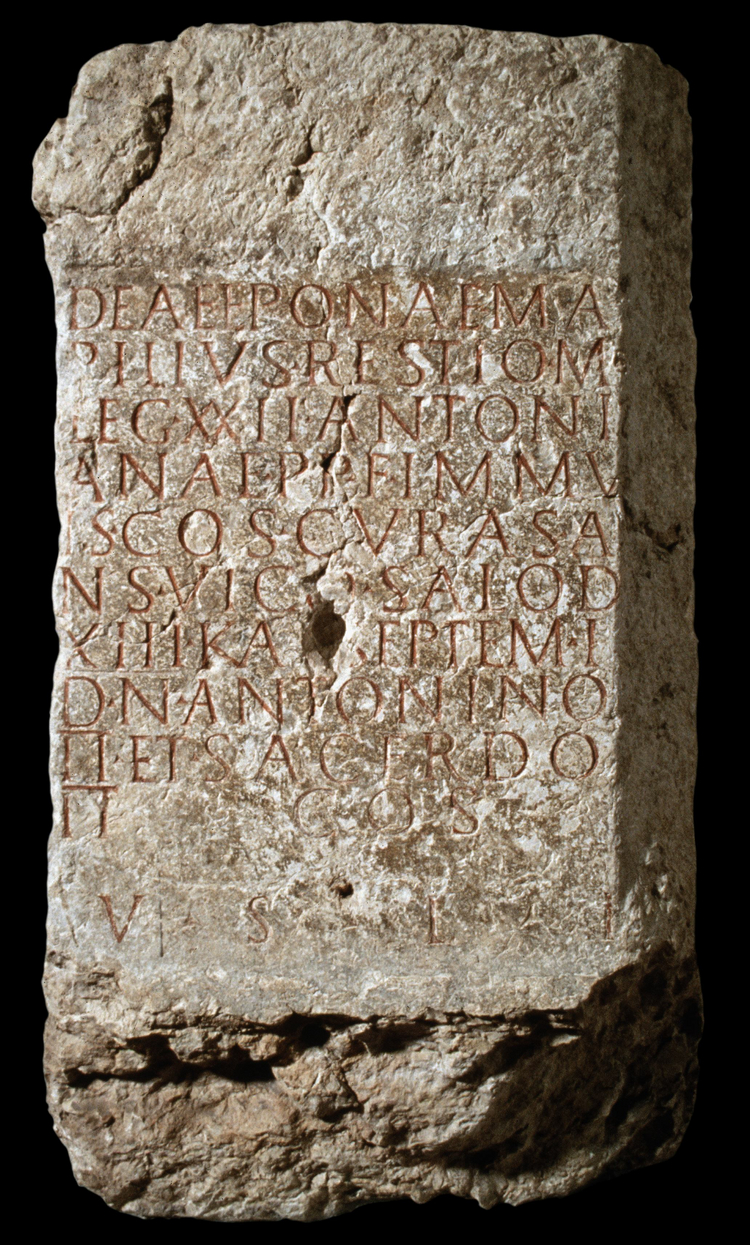 DEAE EPONAE MA
PILIVS RESTIO M
LEG XXII ANTONI
ANAE P P F IMMV
IS COS CVRAS A
NS VICO SALOD
XIIII KA SEPTEM
D N ANTONINO
II ET SACERDO
II COS
V S L